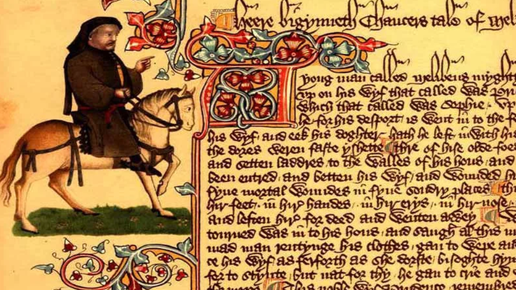 Heere bigynneth Chaucers tale of Mel
yong man called Melibeus myghty
up on his wyf that called was
which that called was Sophie / Up
for his desport is went in to the
his wyf and eek his doghter hath he left in with
the dores weren faste yshette Thre of hise olde foo
and setten laddres to the walles of his hous and
been entred and betten his wyf and wounded
fyve mortal woundes in fyve sondry places
hir feet in hir handes in hir erys in hir nose
and leften hir for deed and wenten awey
torned was in to his hous and saugh al this
mad man rentynge his clothes gan to wepe
his wyf as ferforth as she dorste bisoghte hym
for to stynte but nat for thy he gan to crie and
This noble wyf Prudence remembre